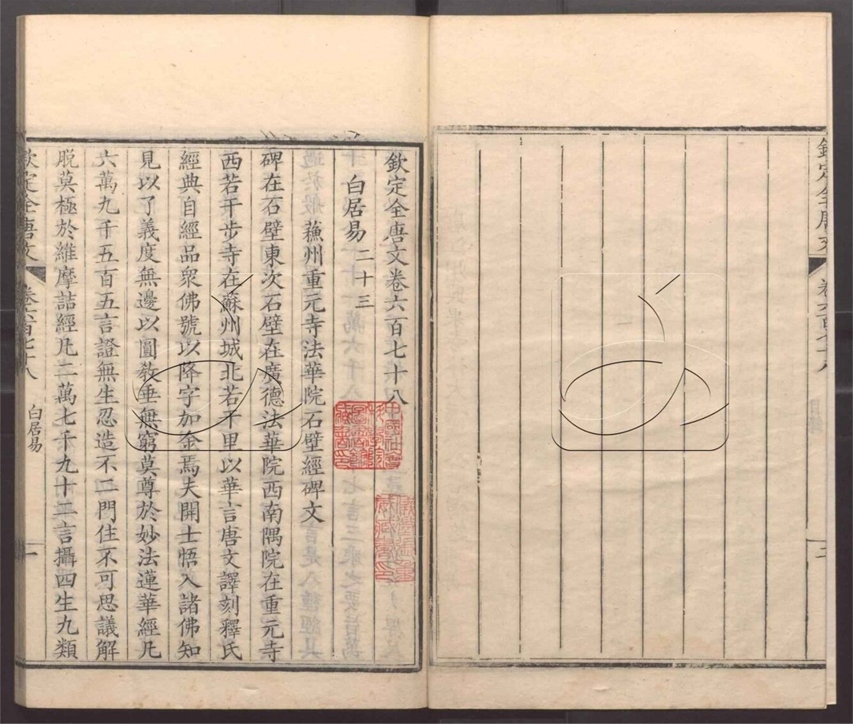 欽定全唐文卷六百七十八
白居易二十三
蘓州重元寺法華院石壁經碑文
碑在石壁東次石壁在廣德法華院西南隅院在重元寺
西若干步寺在蘇州城北若干里以華言唐文譯刻釋氏
經典自經品衆佛號以降字加金焉夫開士悟入諸佛知
見以了義度無邊以圓教垂無窮莫尊於妙法蓮華經凡
六萬九千五百五言證無生忍造不二門住不可思議解
脱莫極於維摩詰經凡二萬七千九十二言攝四生九類
欽定全唐文
卷六百七十八
白居易
一